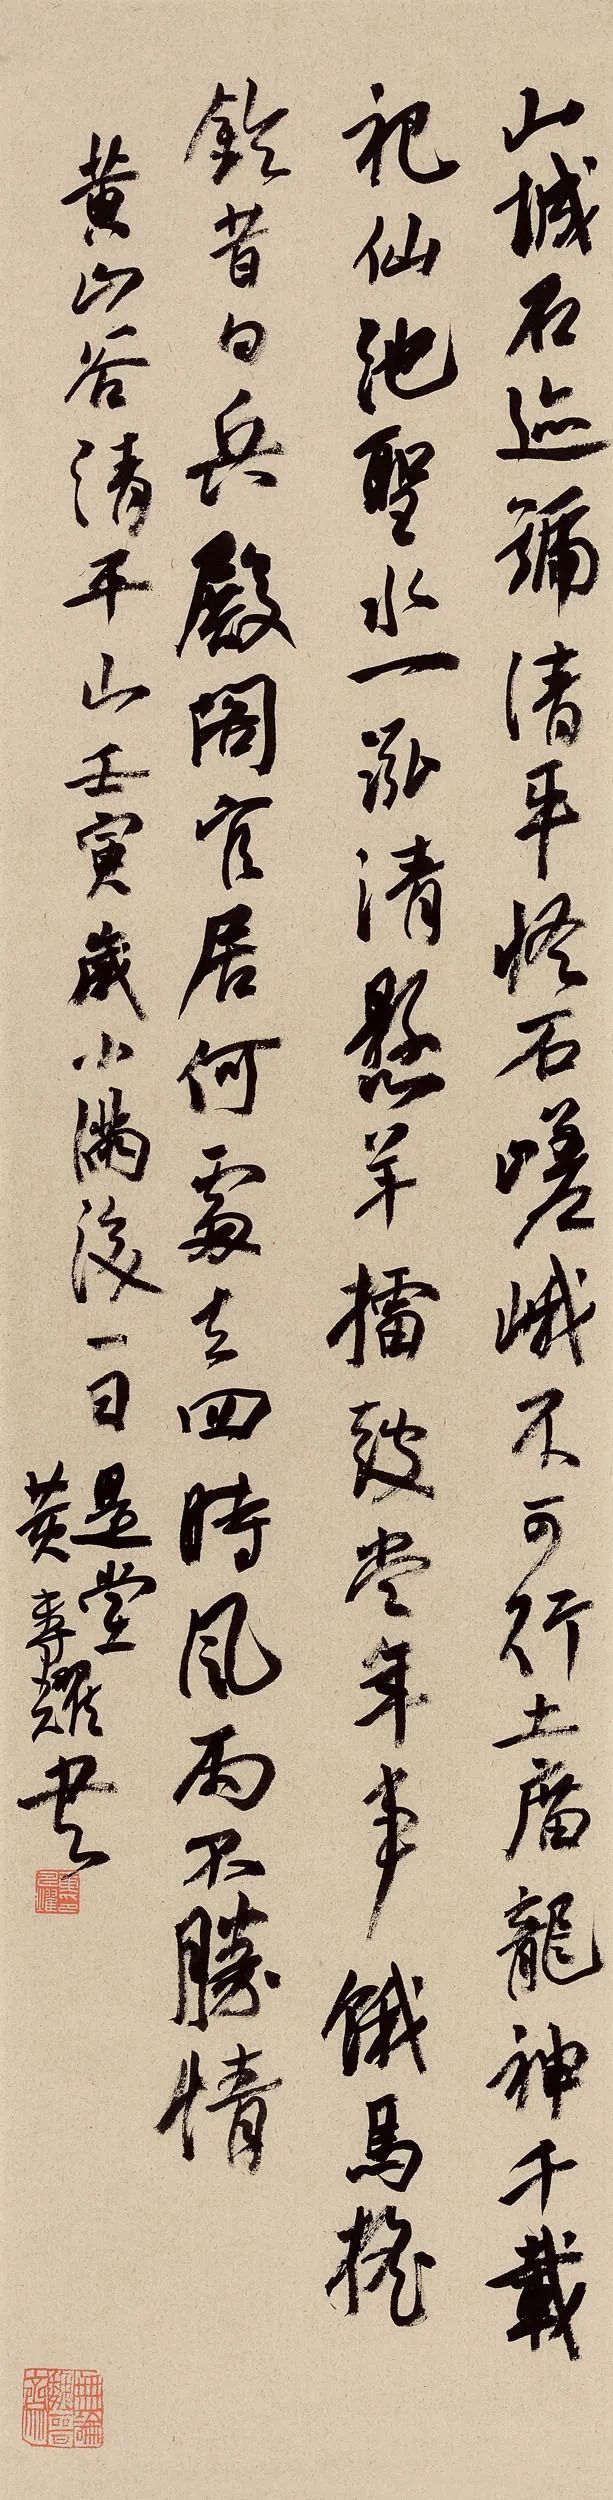 山城石迹號清平怪石嵯峨不可行土廇龍神千載
祀仙池聖水一泓清懸羊擂鼓当年事餓馬搖
鈴昔日兵殿阁官居何處去四時風雨不勝情
黄山谷清平山壬寅歲小满後一日是堂
黄
書